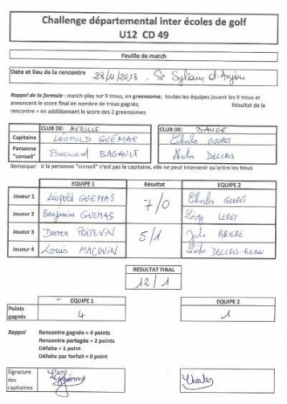 Challenge départemental inter écoles de golf
U12 CD 49
Feuille de match
Date et lieu de la rencontre 28/11/2018. St Sylvain d'Anjou
Rappel de la formule : match-play sur 9 trous, en greensome; toutes les équipes jouent les 9 trous et
annoncent le score final en nombre de trous gagnés; Résultat de la
rencontre = en additionnant le score des 2 greensomes
CLUB DE: AVRILLE CLUB DE: BAUGE
Capitaine LEOPOLD GUEMAS Charles GOURÉ
Personne "conseil" Bernard BAGAULT DELCRS
Remarque: si la personne "conseil" n'est pas le capitaine, elle ne peut intervenir qu'entre les trous
EQUIPE 1 Résultat EQUIPE 2
Joueur 1 Léopold GUEMAS 7/0 Charles GOURÉ
Joueur 2 Benjamin GUEMAS LEROY
Joueur 3 POITEVIN 5/1 Julie
Joueur 4 Louis MACQUIN
RESULTAT FINAL
12/1
EQUIPE 1 EQUIPE 2
Points gagnés 4 1
Rappel Rencontre gagnée = 4 points
Rencontre partagée = 2 points
Défaite = 1 point
Défaite par forfait = 0 point
Signature des capitaines Charles